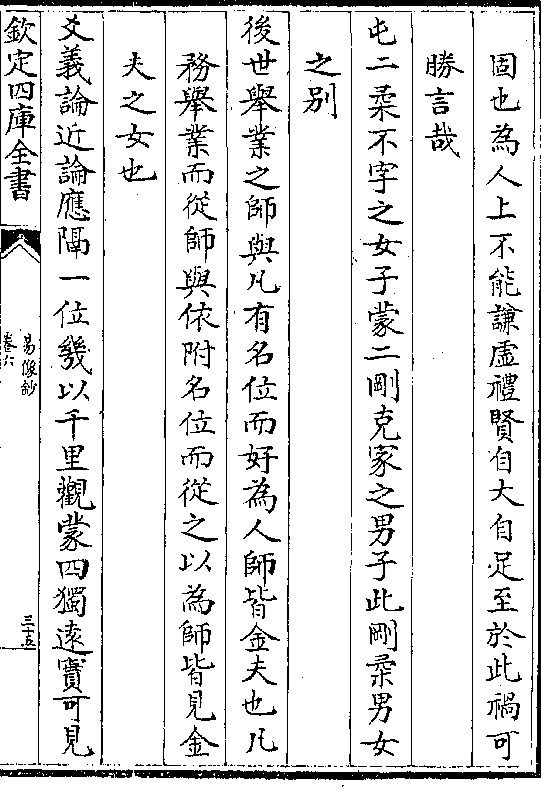 固也為人上不能謙虛禮賢自大自足至於此禍可
勝言哉
屯二柔不字之女子蒙二剛克家之男子此剛柔男女
之别
後世舉業之師與凡有名位而好為人師皆金夫也凡
務舉業而從師與依附名位而從之以為師皆見金
夫之女也
爻義論近論應隔一位幾以千里觀蒙四獨逺實可見
欽定四庫全書
易像鈔
卷六
三十五